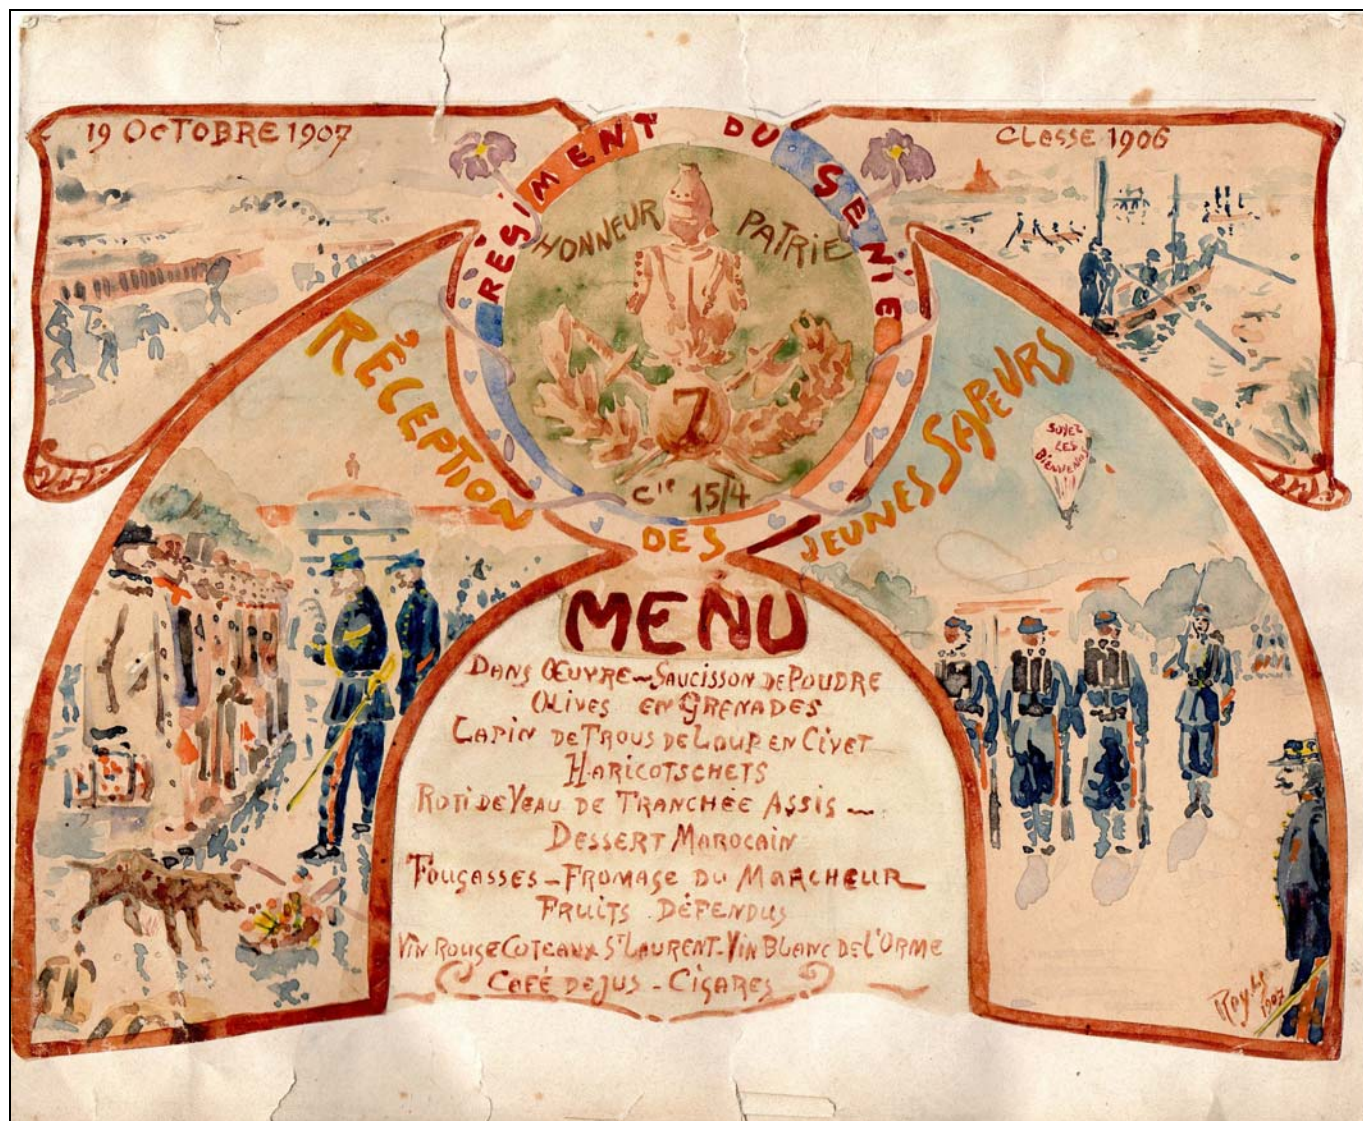 19 OCTOBRE 1907
CLESSE 1906
RÉGIMENT DU GENIE
HONNEUR PATRIE
7
Cie 15/4
RÉCEPTION
DES
JEUNES SAPEURS
SOYEZ
LES
BIENVENUS
MENU
DANS ŒUVRE~SAUCISSON DE POUDRE
OLIVES EN GRENADES
LAPIN DE TROUS DE LOUP EN CIVET
HARICOTSCHETS
ROTI DE VEAU DE TRANCHÉE ASSIS ~
DESSERT MAROCAIN
FOUGASSES - FROMAGE DU MARCHEUR
FRUITS DÉFENDUS
VIN ROUGE COTEAUX ST LAURENT - VIN BLANC DE L'ORME
CAFÉ DE JUS - CIGARES
1907